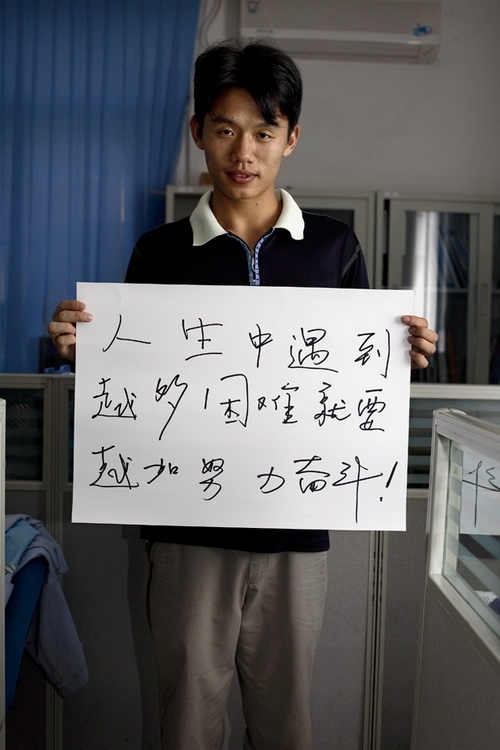 人生中遇到
越多困难就要
越加努力奋斗!